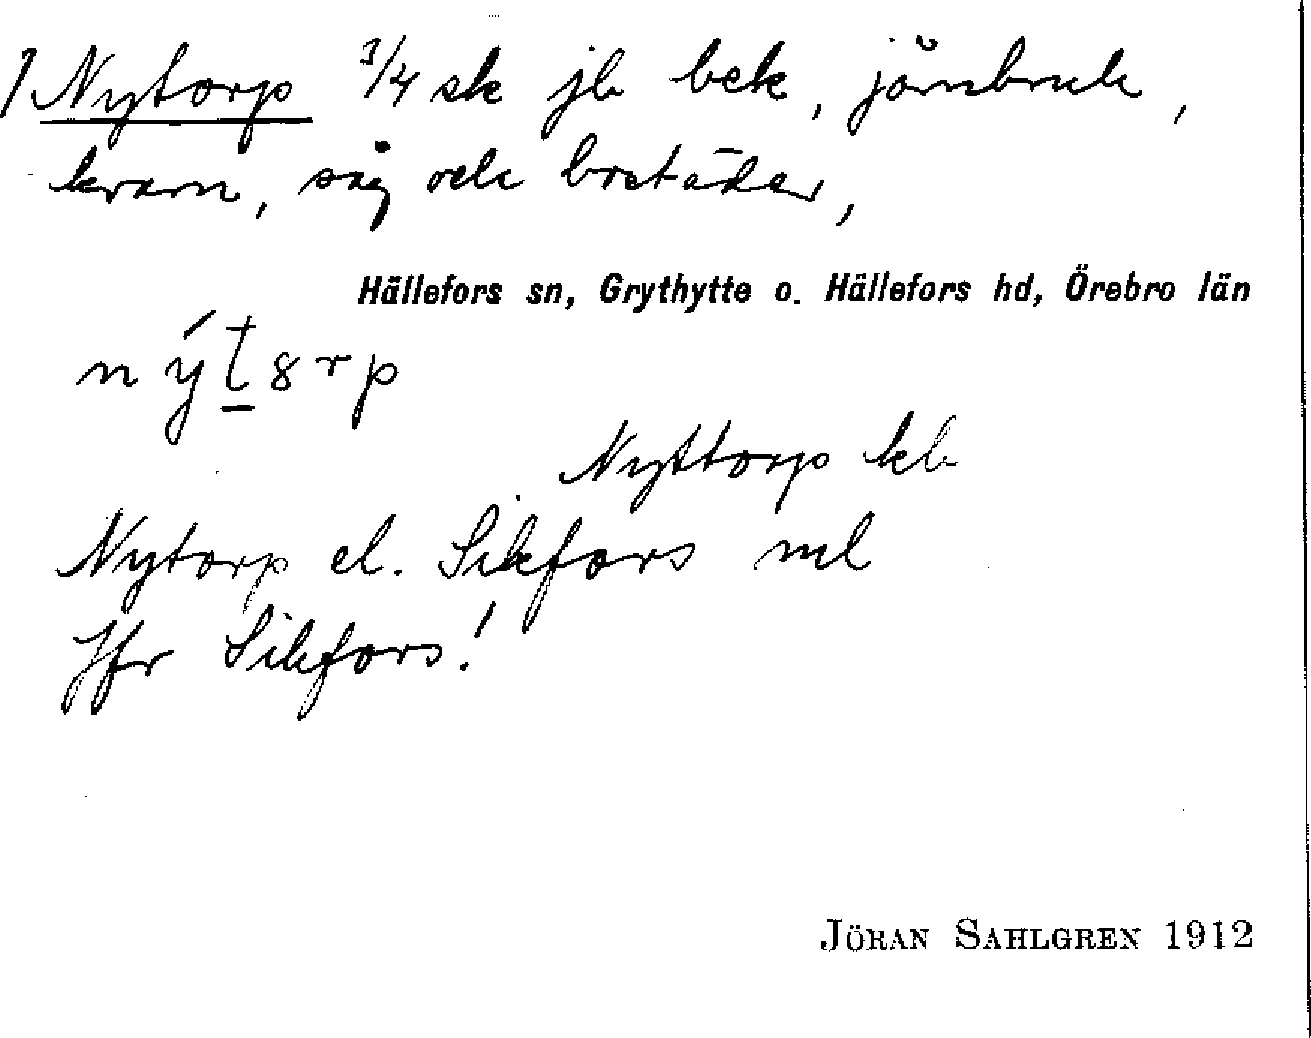 1 Nytorp 3/4 sk jb bek, järnbruk,
kvarn, såg och bostäder,
Hällefors sn, Grythytte o. Hällefors hd, Örebro län
Nyttorp kb
Nytorp el. Sikfors ml
Jfr Sikfors!
JÖRAN SAHLGREN 1912